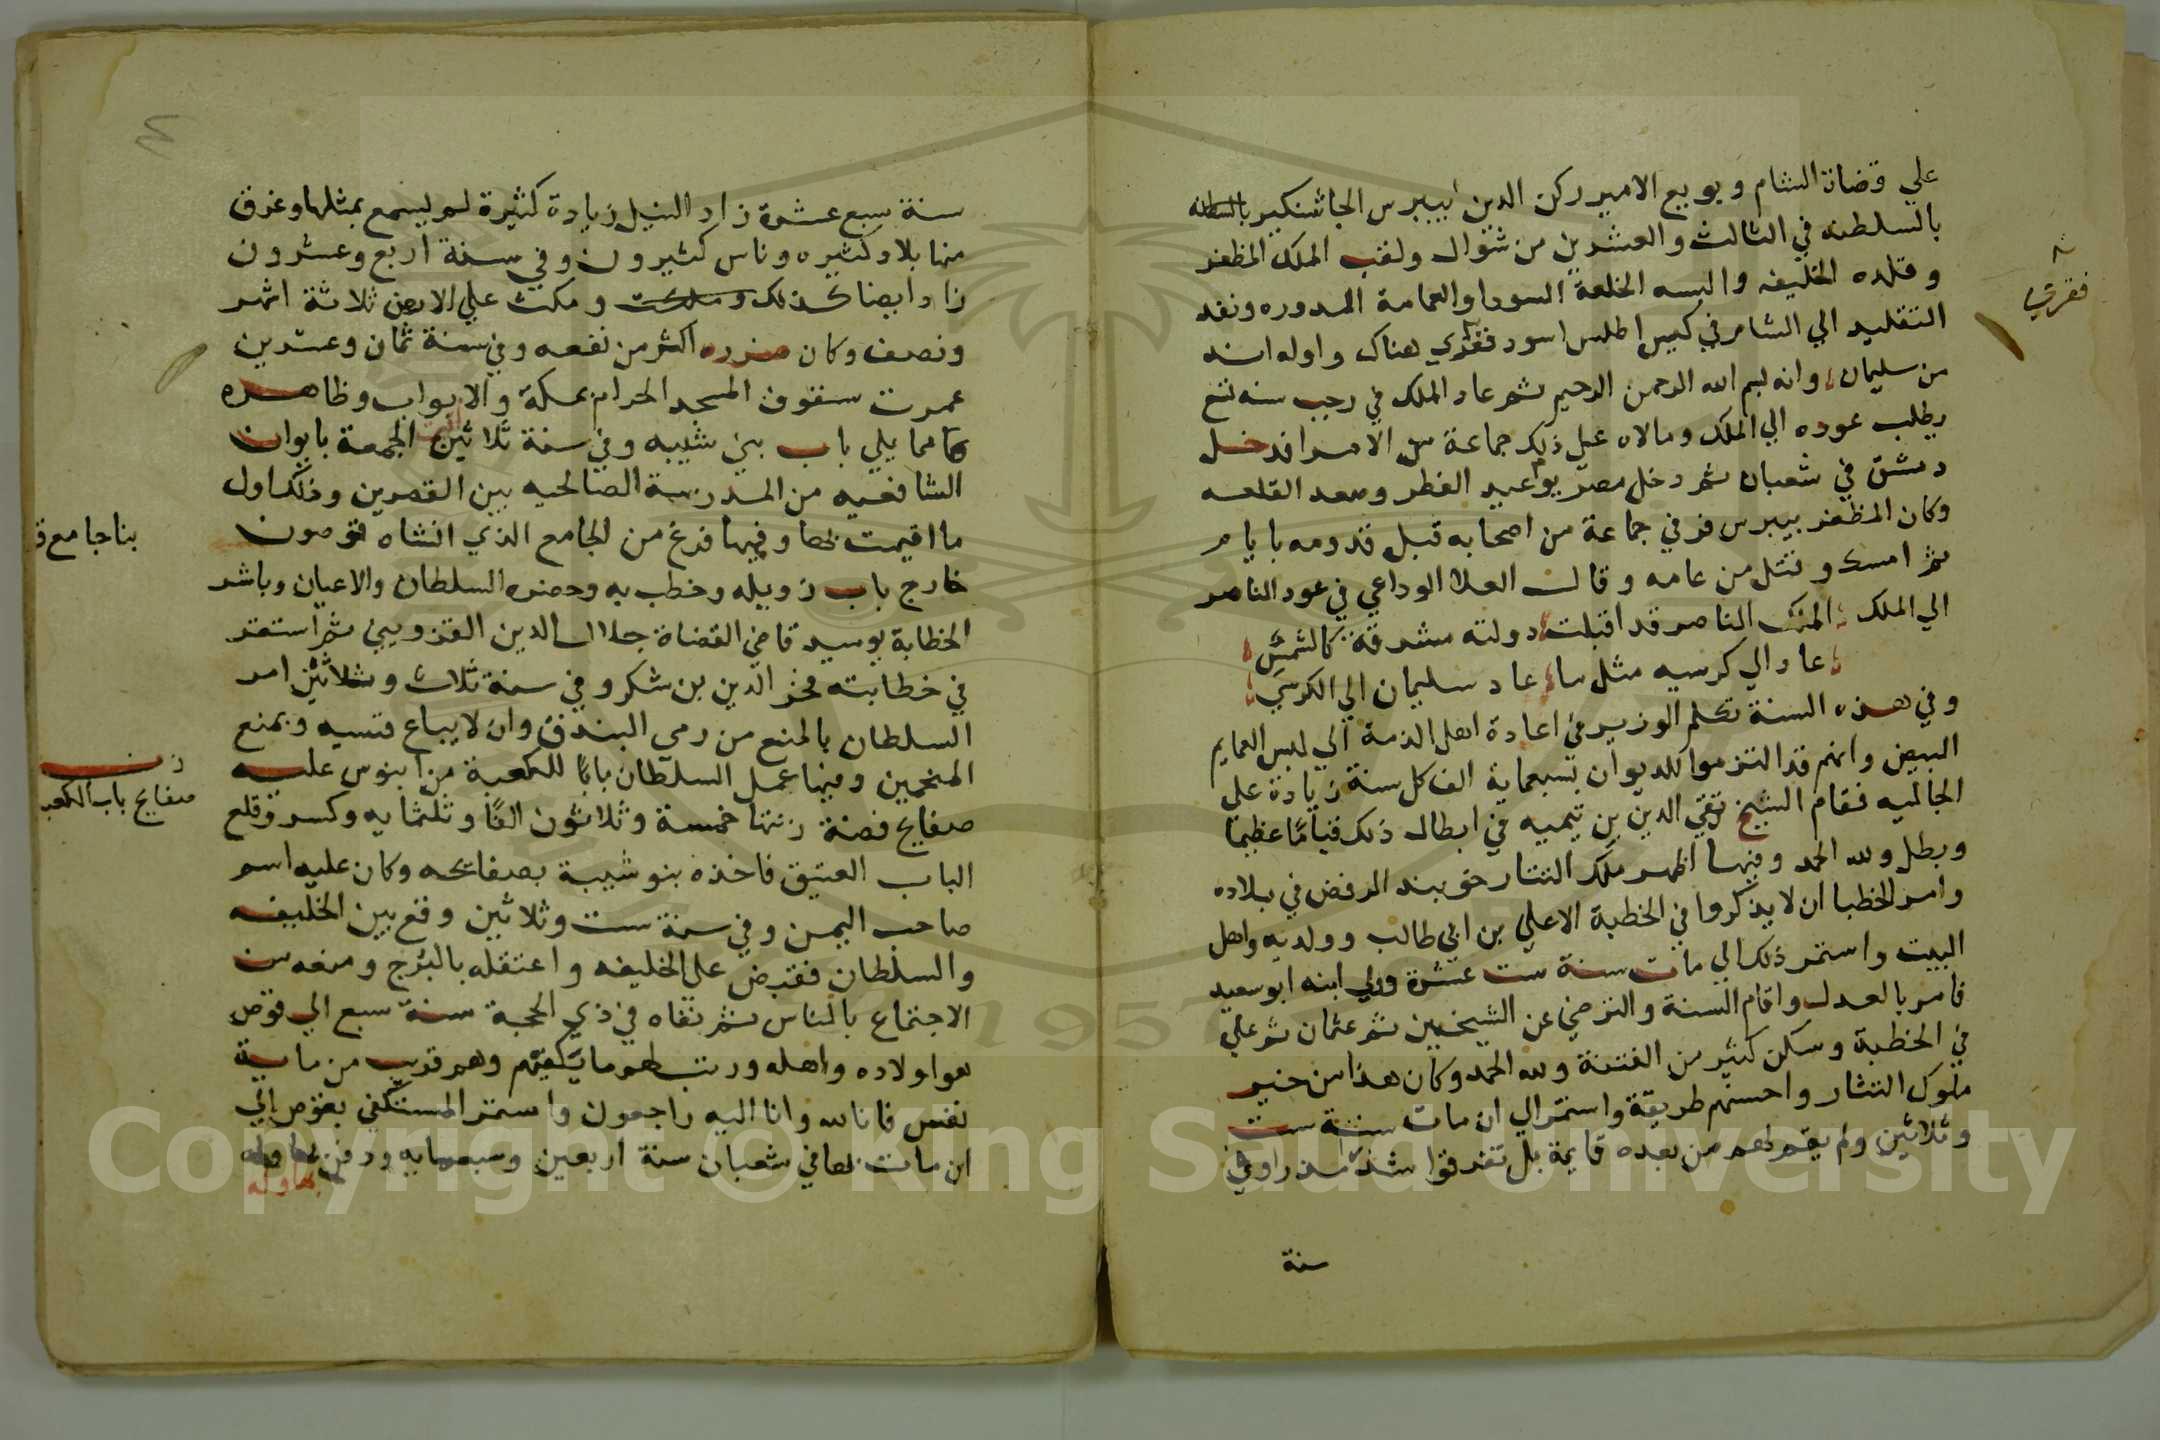 علي قضاة الشام وبويع الامير ركن الدين بيبرس الجاشنكير بالسلطنه
بالسلطنه في الثالث والعشرين من شوال ولقب الملك المظفر
وقلده الخليفه والبسه الخلعة السودا والعمامة المدوره ونفذ
التقليد الي الشام في كيس اطلس اسود فقري هناك واوله انه
من سليمان وانه بسم الله الرحمن الرحيم ثم عاد الملك في رجب سنه تسع
يطلب عوده الي الملك ومالاه علي ذلك جماعة من الامرا فدخل
دمشق في شعبان ثم دخل مصر يوم عيد الفطر وصعد القلعه
وكان المظفر بيبرس فر في جماعة من اصحابه قبل قدومه بايام
ثم امسك وقتل من عامه وقال العلا الوداعي في عود الناصر
الي الملك الملك الناصر قد اقبلت دولته مشرقة كالشمس
عاد الي كرسيه مثل ما عاد سليمان الي الكرسي
وفي هذه السنة تكلم الوزير في اعادة اهل الذمة الي لبس العمايم
البيض وانهم قد التزموا للديوان بسبعماية الف كل سنة زيادة علي
الجاليه فقام الشيخ تقي الدين بن تيميه في ابطال ذلك قياما عظيما
وبطل ولله الحمد وفيها اظهر ملك التتار خوبند الرفض في بلاده
وامر الخطبا ان لا يذكروا في الخطبة الا علي بن ابي طالب وولديه واهل
البيت واستمر ذلك الي مات سنة ست عشرة وولي ابنه ابو سعيد
فامر بالعدل واقام السنة والترضي عن الشيخين ثم عثمان ثم علي
في الخطبة وسكن كثير من الفتنة ولله الحمد وكان هذا من خير
ملوك التتار واحسنهم طريقة واستمر الي ان مات سنة ست
وثلاثين ولم يقم لهم من بعده قايمة بل تفرقوا شذر مذر وفي
سنة
فقري
سنة سبع عشرة زاد النيل زيادة كثيرة لم يسمع بمثلها وغرق
منها بلاد كثيره وناس كثيرون وفي سنة اربع وعشرون
زاد ايضا كذلك ومكث علي الارض ثلاثة اشهر
ونصف وكان ضرره اكثر من نفعه وفي سنة ثمان وعشرين
عمرت سقوف المسجد الحرام بمكة والابواب وظاهره
مما يلي باب بني شيبه وفي سنة ثلاثين اقيمت الجمعة بايوان
الشافعيه من المدرسة الصالحيه بين القصرين وذلك اول
ما اقيمت بها وفيها فرغ من الجامع الذي انشاه قوصون
خارج باب زويله وخطب به وحضره السلطان والاعيان وباشر
الخطابة يوميد قاضي القضاة جلال الدين القزويني ثم استقر
في خطابته فخر الدين بن شكر وفي سنة ثلاث وثلاثين امر
السلطان بالمنع من رمي البندق وان لا يباع قسيه وبمنع
المنجمين وفيها عمل السلطان بابا للكعبة من ابنوس عليه
صفايح فضة زنتها خمسة وثلاثون الفا وثلثمايه وكسر وقلع
الباب العتيق فاخذه بنو شيبة بصفايحه وكان عليه اسم
صاحب اليمن وفي سنة ست وثلاثين وقع بين الخليفه
والسلطان فقبض علي الخليفه واعتقله بالبرج ومنعه من
الاجتماع بالناس ثم نفاه في ذي الحجة سنة سبع الي قوص
هو اولاده واهله ورتب لهم ما يكفيهم وهم قريب من ماية
نفس فانا لله وانا اليه راجعون واستمر المستكفي بقوص الي
ان مات بها في شعبان سنة اربعين وسبعمايه ودفن بها وله
بها وله
بنا جامع ق
زنـ
صفايح باب الكعبه
Copyright © King Saud University
1957